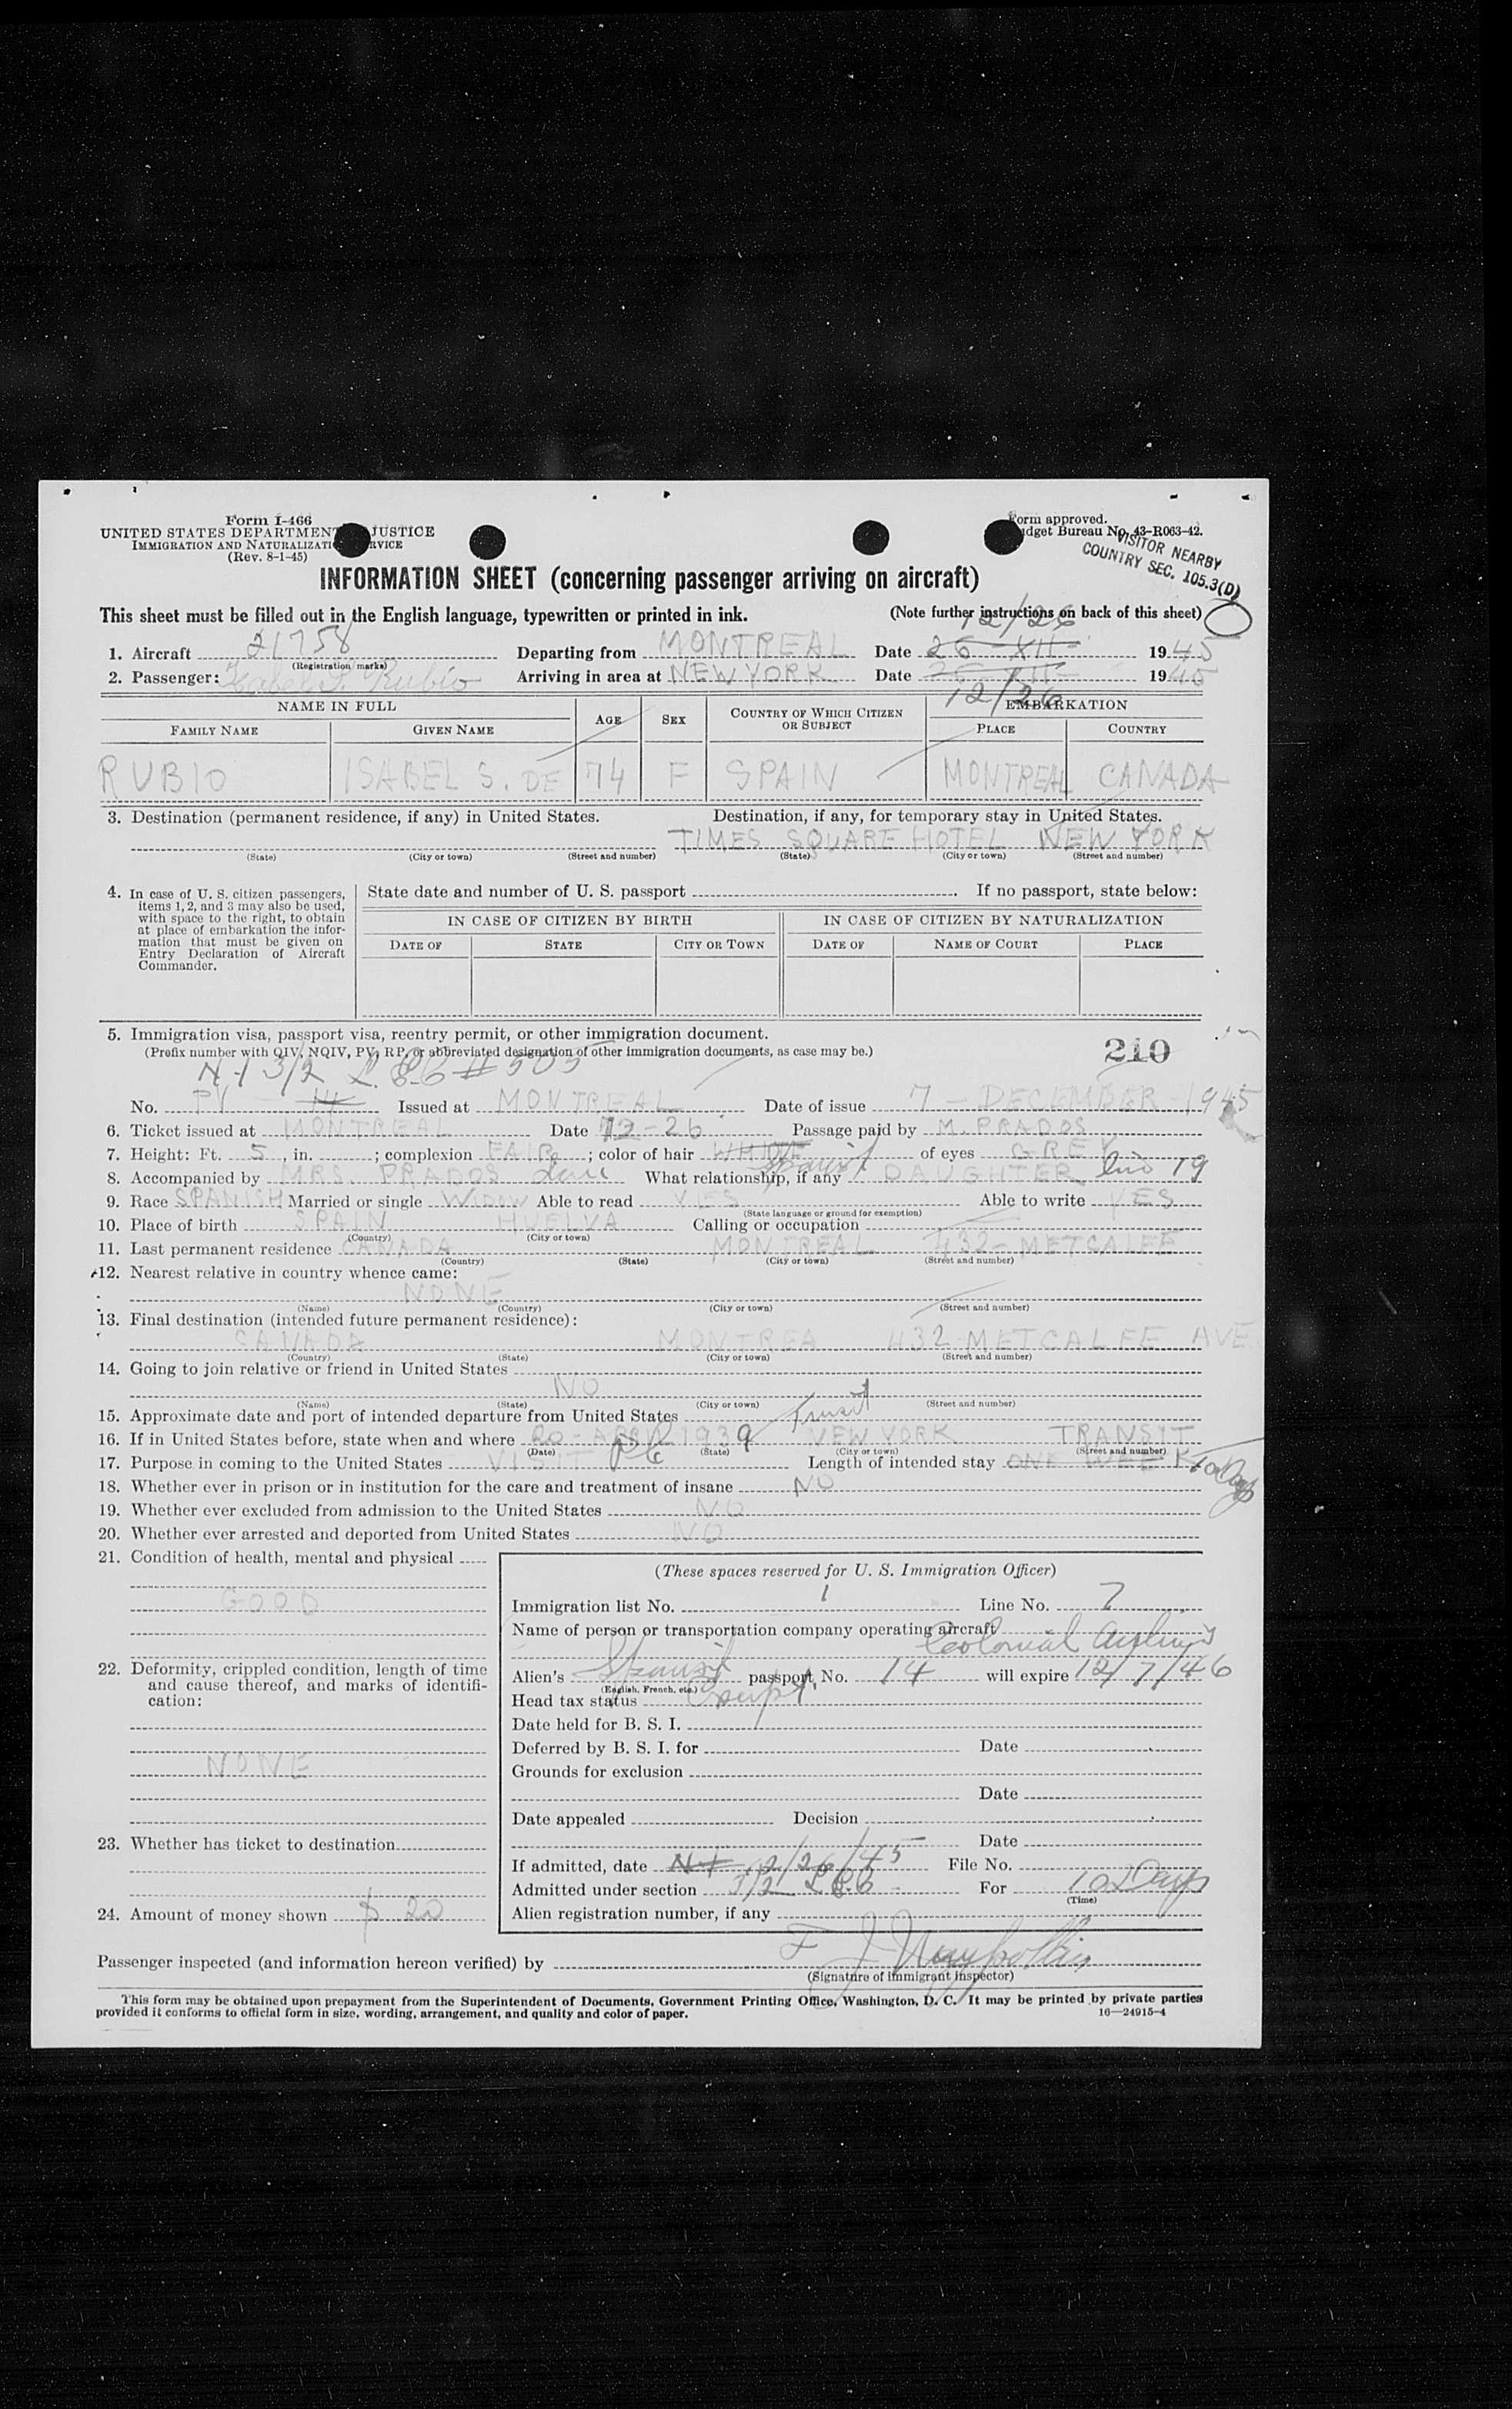 Form I-466
UNITED STATES DEPARTMENT JUSTICE
IMMIGRATION AND NATURALIZATI RVICE
(Rev. 8-1-45)
Form approved.
dget Bureau No. 43-R063-42.
VISITOR NEARBY
COUNTRY SEC. 105.3(D)
INFORMATION SHEET (concerning passenger arriving on aircraft)
This sheet must be filled out in the English language, typewritten or printed in ink. (Note further instructions on back of this sheet)
12/26
1. Aircraft 21758 Departing from MONTREAL Date 26-XII- 1945
(Registration marks)
2. Passenger: Isabel S. Rubio Arriving in area at NEW YORK Date 26-XII- 1945
12/26
NAME IN FULL AGE SEX COUNTRY OF WHICH CITIZEN OR SUBJECT EMBARKATION
FAMILY NAME GIVEN NAME PLACE COUNTRY
RUBIO ISABEL S. DE 74 F SPAIN MONTREAL CANADA
3. Destination (permanent residence, if any) in United States. Destination, if any, for temporary stay in United States.
TIMES SQUARE HOTEL NEW YORK
(State) (City or town) (Street and number) (State) (City or town) (Street and number)
4. In case of U. S. citizen passengers, items 1, 2, and 3 may also be used, with space to the right, to obtain at place of embarkation the information that must be given on Entry Declaration of Aircraft Commander.
State date and number of U. S. passport . If no passport, state below:
IN CASE OF CITIZEN BY BIRTH IN CASE OF CITIZEN BY NATURALIZATION
DATE OF STATE CITY OR TOWN DATE OF NAME OF COURT PLACE
5. Immigration visa, passport visa, reentry permit, or other immigration document.
(Prefix number with QIV, NQIV, PV, RP, or abbreviated designation of other immigration documents, as case may be.)
210
3/2 #505
No. PV 14 Issued at MONTREAL Date of issue 7 - DECEMBER - 1945
6. Ticket issued at MONTREAL Date 12-26 Passage paid by M. PRADOS
7. Height: Ft. 5, in. ; complexion FAIR; color of hair WHITE of eyes GREY
8. Accompanied by MRS. PRADOS What relationship, if any DAUGHTER 19
9. Race SPANISH Married or single WIDOW Able to read YES Spanish Able to write YES
(State language or ground for exemption)
10. Place of birth SPAIN HUELVA Calling or occupation
(Country) (City or town)
11. Last permanent residence CANADA MONTREAL 432-METCALFE
(Country) (State) (City or town) (Street and number)
12. Nearest relative in country whence came:
NONE
(Name) (Country) (City or town) (Street and number)
13. Final destination (intended future permanent residence):
CANADA MONTREA 432-METCALFE AVE
(Country) (State) (City or town) (Street and number)
14. Going to join relative or friend in United States
NO
(Name) (State) (City or town) (Street and number)
15. Approximate date and port of intended departure from United States
16. If in United States before, state when and where 20-APRIL 1939 NEW YORK TRANSIT
(Date) (State) (City or town) (Street and number)
17. Purpose in coming to the United States VISIT Length of intended stay ONE WEEK 10 Days
18. Whether ever in prison or in institution for the care and treatment of insane NO
19. Whether ever excluded from admission to the United States NO
20. Whether ever arrested and deported from United States NO
21. Condition of health, mental and physical
GOOD
22. Deformity, crippled condition, length of time and cause thereof, and marks of identification:
NONE
23. Whether has ticket to destination
24. Amount of money shown $ 20
(These spaces reserved for U. S. Immigration Officer)
Immigration list No. 1 Line No. 7
Name of person or transportation company operating aircraft
Colonial Airlines
Alien's Spanish passport No. 14 will expire 12/7/46
(English, French, etc.)
Head tax status Exempt
Date held for B. S. I.
Deferred by B. S. I. for Date
Grounds for exclusion
Date
Date appealed Decision
Date
If admitted, date 12/26/45 File No.
Admitted under section 3/2 For 10 Days
(Time)
Alien registration number, if any
Passenger inspected (and information hereon verified) by F J
(Signature of immigrant inspector)
This form may be obtained upon prepayment from the Superintendent of Documents, Government Printing Office, Washington, D. C. It may be printed by private parties
provided it conforms to official form in size, wording, arrangement, and quality and color of paper. 16—24915-4